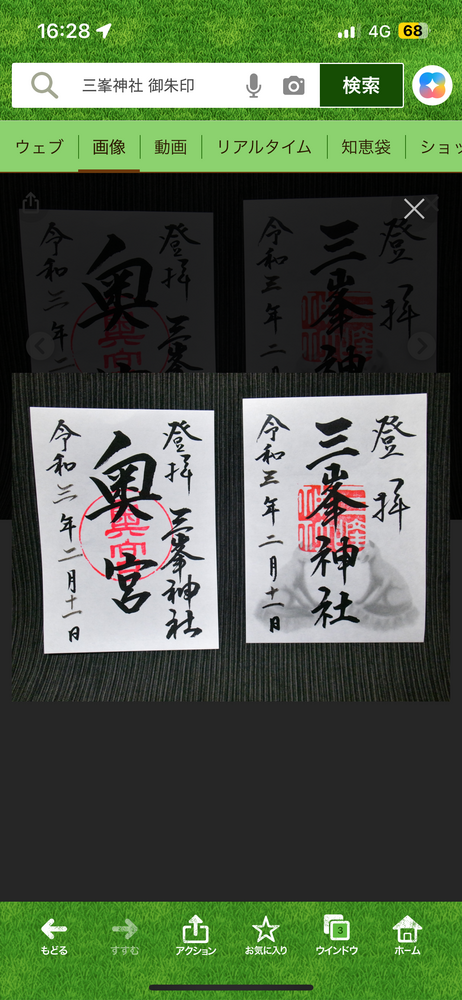 16:28
4G
68
三峯神社 御朱印
検索
ウェブ
画像
動画
リアルタイム
知恵袋
ショッ
登拝 三峯
奥
令和三年二
登拝
三峯神
令和三年二
登拝 三峯神社
奥宮
奥宮
令和三年二月十一日
登拝
三峯神社
令和三年二月十一日
もどる
すすむ
アクション
お気に入り
3
ウインドウ
ホーム